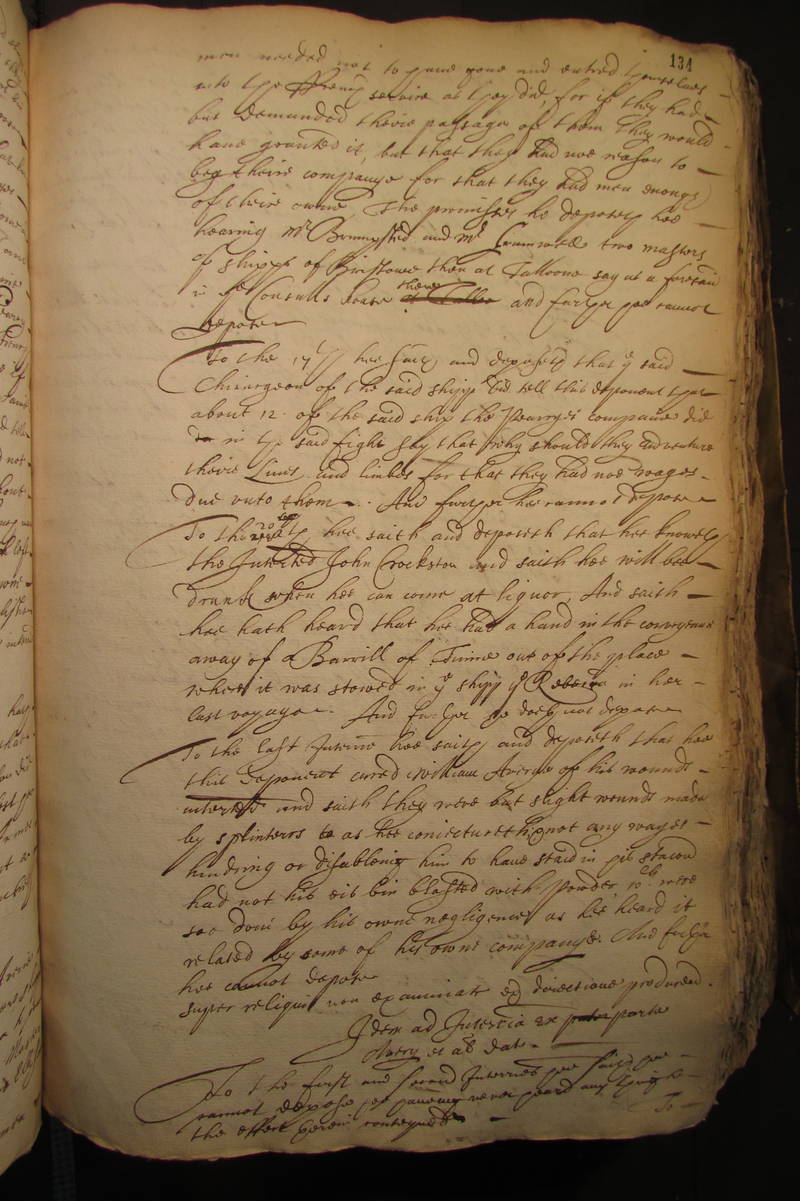 134
men needed not to have gone and entred themselves
into the service as they did, for if they had
but demanded theire passage of them they would
have granted it, but that they had noe reason to
beg theire companye for that they had men enough
of theire owne, The premisses he deposeth hee
hearing Mr Brumsted and Mr two masters
of shipps of Bristowe then at say as aforesaid
in ye Consulls house there and further hee cannot
depose
To the 17th hee saith and deposeth that ye said
Chirurgeon of the said shipp did tell this deponent that
about 12 of the said ship the companie did
in the said fight say that why should they adventure
theire Lives and limbes for that they had noe wages
due unto them. And further hee cannot depose
To the 20th hee saith and deposeth that hee knoweth
the Interred John Crockston and saith hee will bee
drunk when hee can come at liquor, And saith
hee hath heard that hee had a hand in the conveyeance
away of a Barrill of out of the place
where it was stowed in ye shipp ye Rebecca in her
last voyage. And further he doeth not depose
To the last Interrie hee saith and deposeth that hee
this deponent cured William of his wounds
and saith they were but slight wounds made
by splinters as hee coniectureth not any wayes
hindring or disableing him to have staid in his
had not his bin blasted with powder wch were
soe don by his owne negligence as hee heard it
related by some of his owne companye. And further
hee cannot depose
super reliquis non examinatr ex directione producend.
Idem ad Interria ex parte
et al dat.
To the first and second Interries hee saith hee
cannot depose having never heard any thing
the effect herein conteyned
To